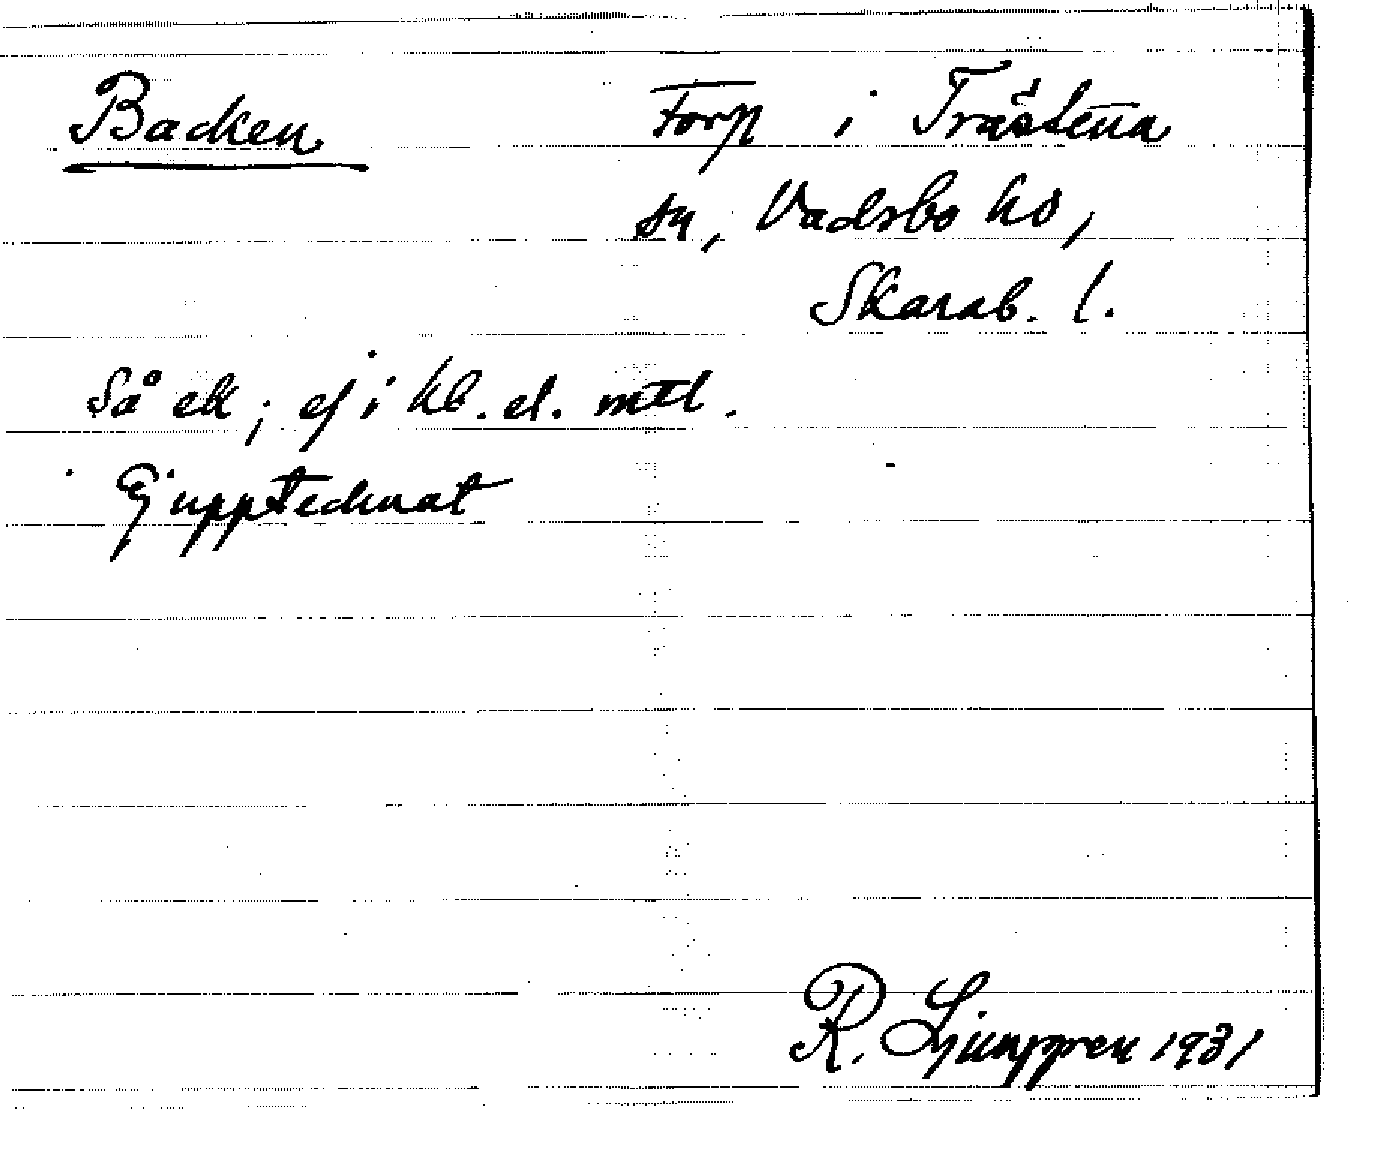 Backen Torp i Trästena
sn, Vadsbo hd,
Skarab. l.
Så ek; ej i kb. el. mtl.
Ej upptecknat
R. Ljunggren 1931